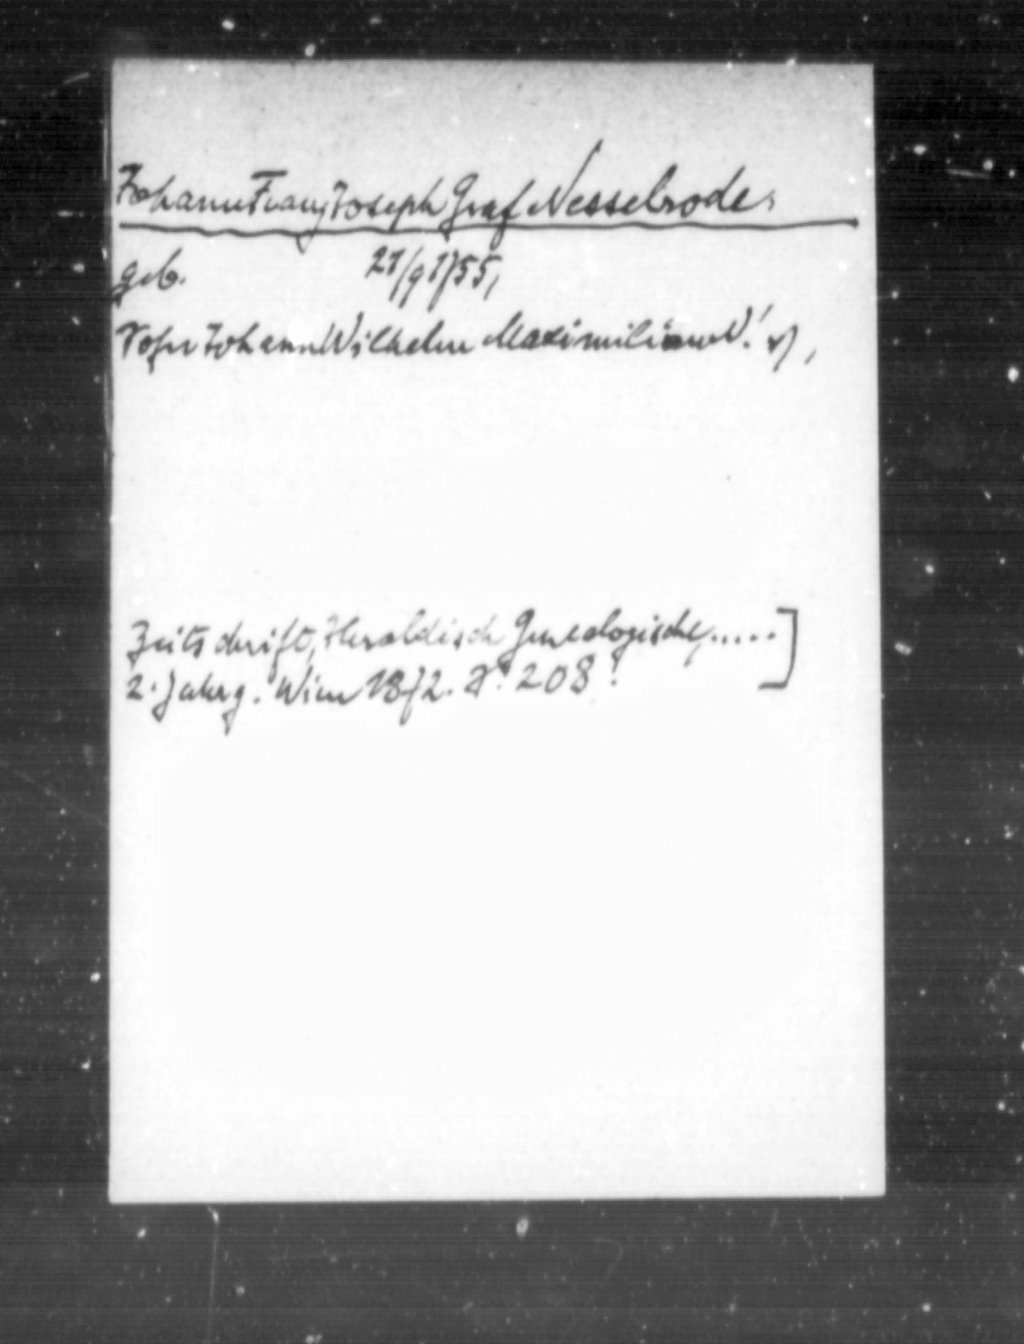 Johann Franz Joseph Graf Nesselrode,
geb. 21/9 1755,
Johann Wilhelm Maximilian N!
Zeitschrift, Heraldisch Genealogische, .....]
2. Jahrg. Wien 1872. S. 208!